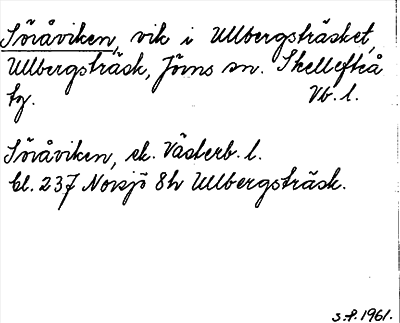 Söråviken, vik i Ullbergsträsket,
Ullbergsträsk, Jörns sn. Skellefteå
tg. Vb. l.
Söråviken, ek. Västerb. l.
bl. 237 Norsjö 8h Ullbergsträsk.
s.f. 1961.